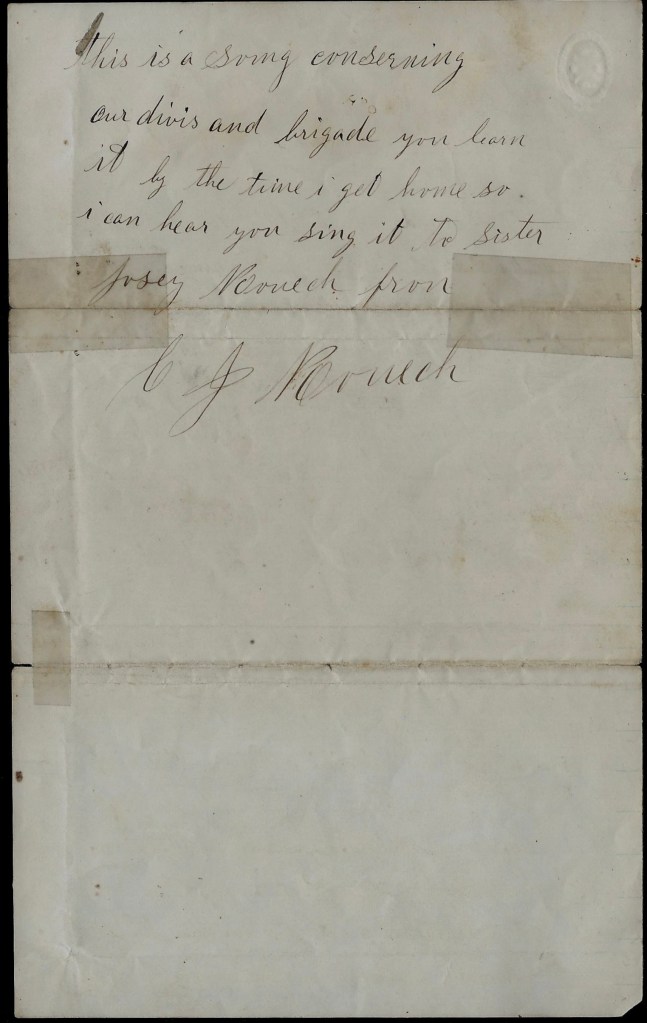 this is a song conserning
our divis and brigade you learn
it by the time i get home so.
i can hear you sing it to sister
Josey Kouech from
C J Kouech